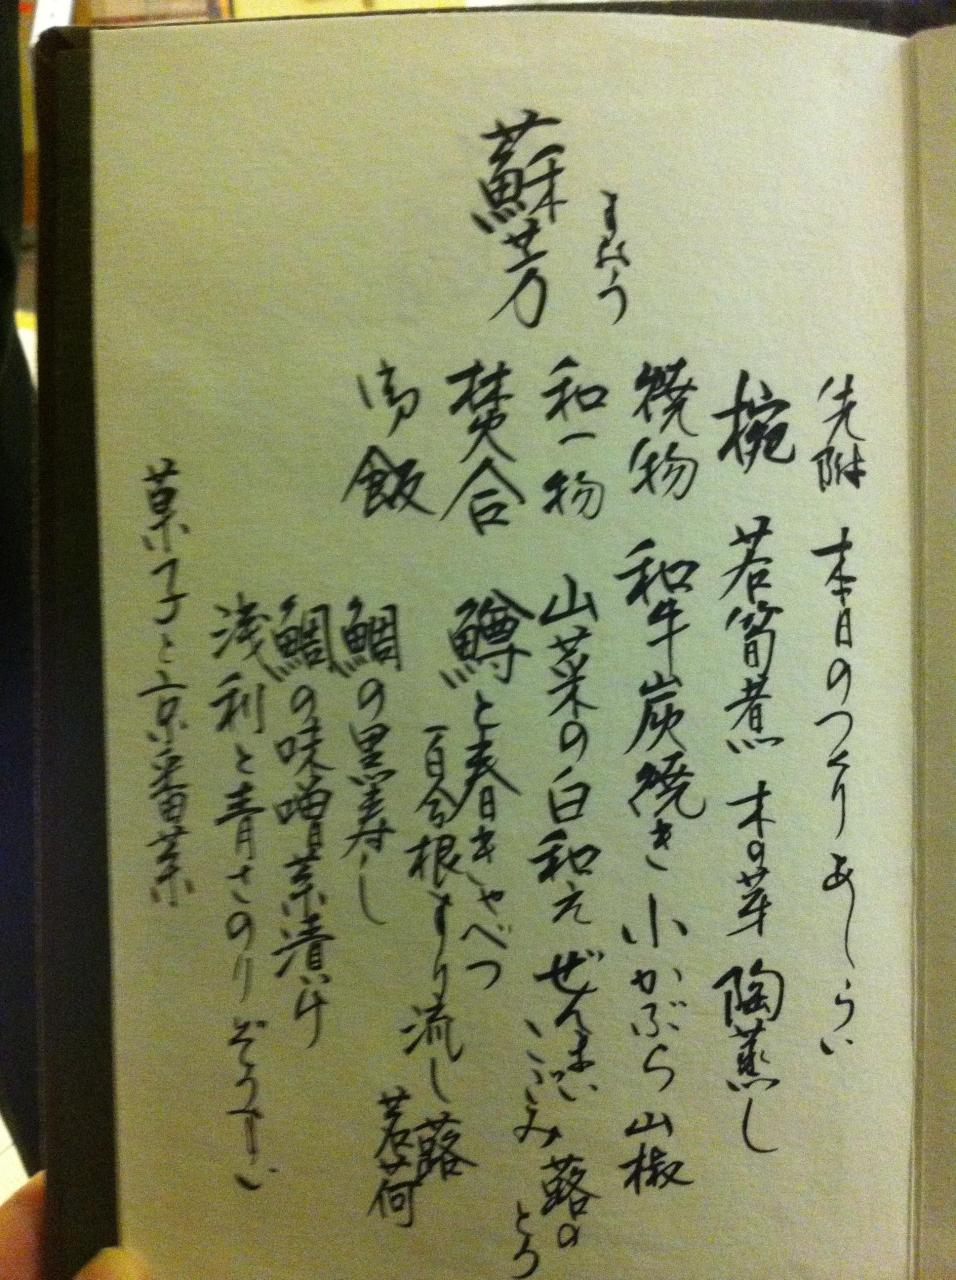 すおう
蘇芳
先附 本日のつくりあしらい
椀 若筍煮 木の芽 陶蒸し
焼物 和牛炭焼き 小かぶら 山椒
和一物 山菜の白和え ぜんまい こごみ 蕗のとう
焚合 鱒と春きゃべつ
百合根すり流し 蕗 茗荷
御飯 鯛の黒寿し
鯛の味噌茶漬け
浅利と青さのりぞうすい
菓子と京番茶